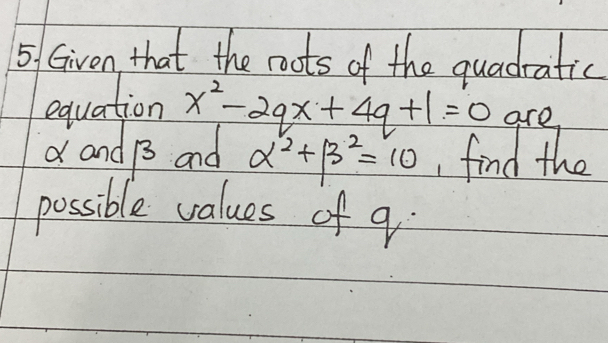 5. Given that the roots of the quadratic
equation x² - 2qx + 4q + 1 = 0 are
α and β and α² + β² = 10, find the
possible values of q.